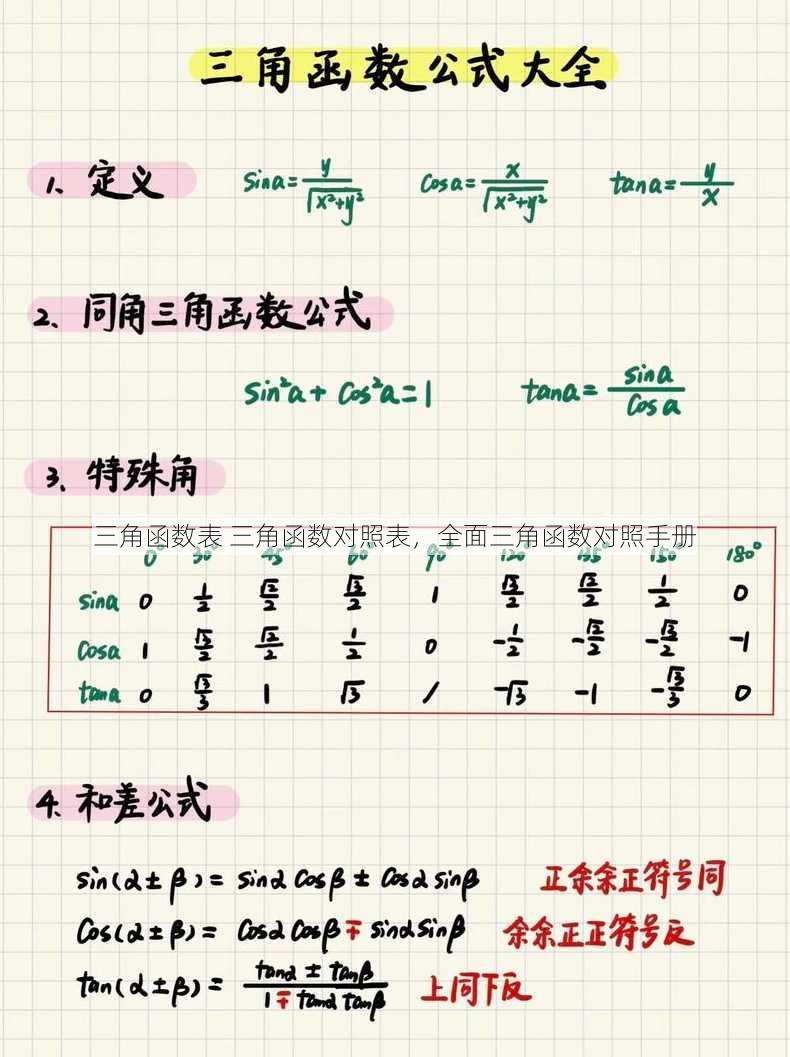 三角函数公式大全
1、定义 sina=y/√(x²+y²) cosa=x/√(x²+y²) tana=y/x
2、同角三角函数公式
sin²a+cos²a=1 tana=sina/cosa
3、特殊角
三角函数表 三角函数对照表，全面三角函数对照手册
0° 30° 45° 60° 90° 120° 135° 150° 180°
sina 0 1/2 √2/2 √3/2 1 √3/2 √2/2 1/2 0
cosa 1 √3/2 √2/2 1/2 0 -1/2 -√2/2 -√3/2 -1
tana 0 √3/3 1 √3 / -√3 -1 -√3/3 0
4、和差公式
sin(α±β)= sinα cosβ ± cosα sinβ 正余余正符号同
cos(α±β)= cosα cosβ ∓ sinα sinβ 余余正正符号反
tan(α±β)= (tanα ± tanβ)/(1 ∓ tanα tanβ) 上同下反